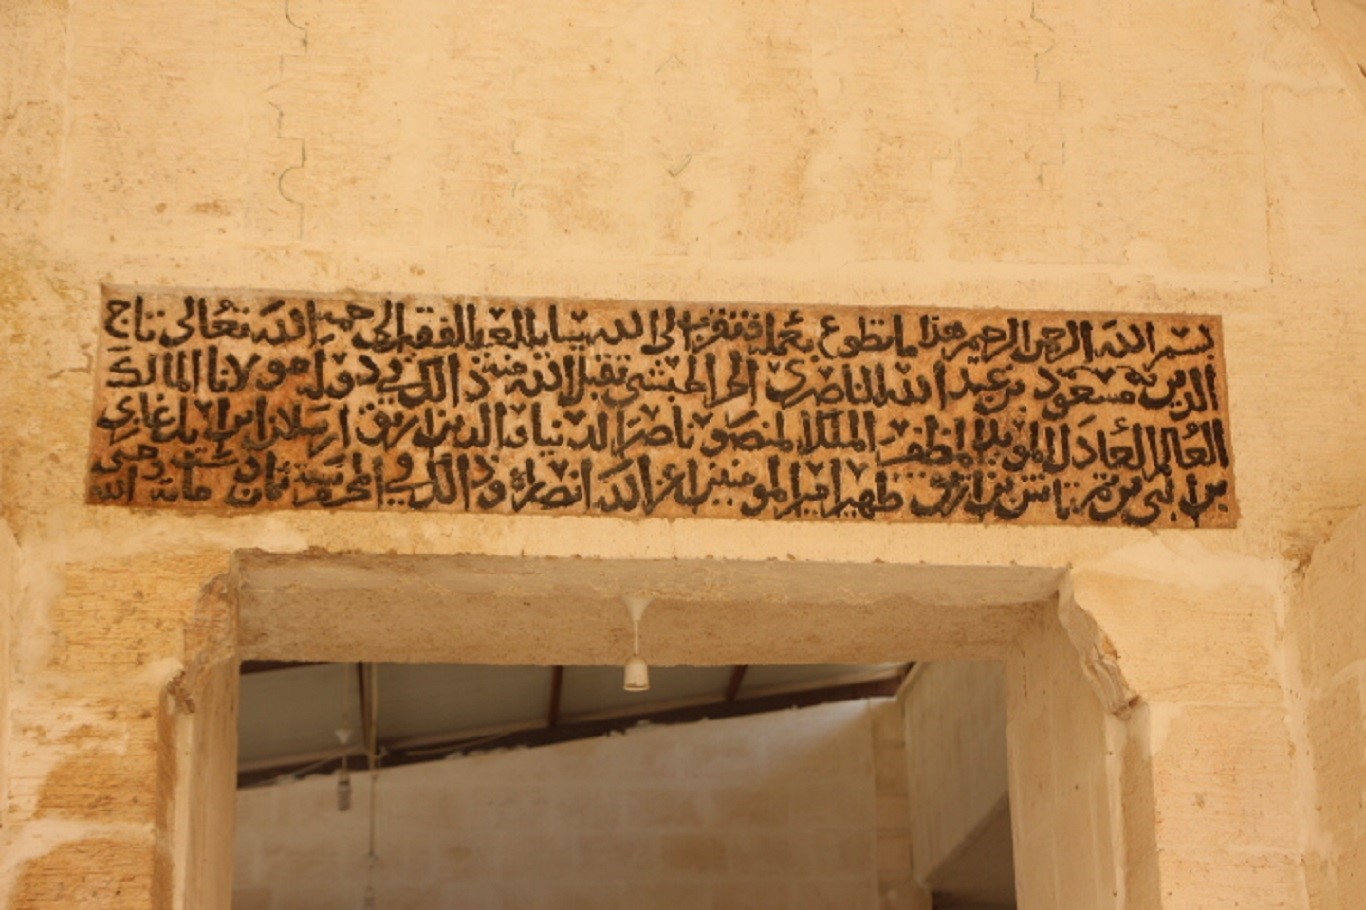 بسم الله الرحمن الرحيم هذا ما تطوع بعمله وتقرب الى الله العبد الفقير الى رحمة الله تعالى تاج
الدين مسعود بن عبد الله الناصري الى الحبشي تقبل الله منه وذالك في دولة مولانا المالك
العالم العادل المؤيد المظفر الملك المنصور ناصر الدنيا والدين ارتق ارسلان ابن ايل غازي
بن البي بن تمرتاش بن ارتق ظهير امير المومنين اعز الله انصاره وذالك في المحرم سنة ثمان مائة الله